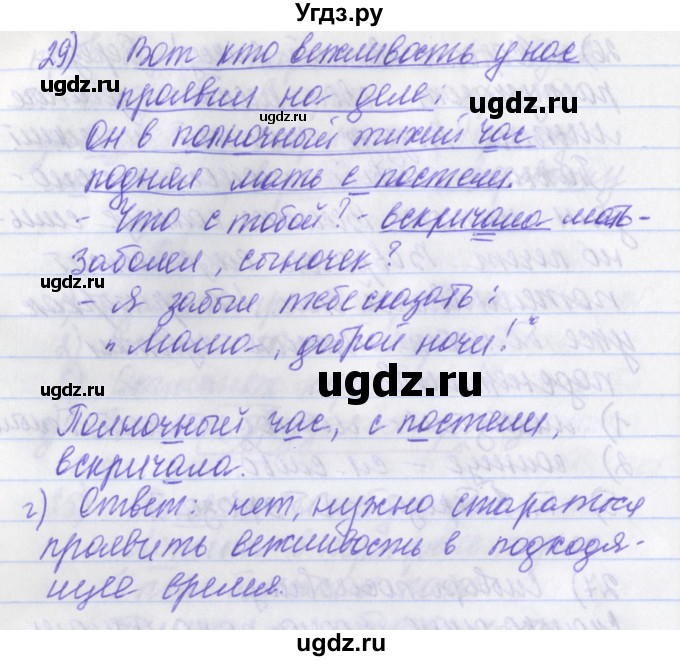 Угдз.ру
29) Вот кто вежливость у нас
проявил на деле:
Он в полночный тихий час
поднял мать с постели.
- Что с тобой? - вскричала мать-
Заболел, сыночек?
- Я забыл тебе сказать:
"Мама, доброй ночи!"
Полночный час, с постели,
вскричала.
г) Ответ: нет, нужно стараться
проявить вежливость в подходя-
щее время.
ugdz.ru
ugdz.ru
ugdz.ru
ugdz.ru
ugdz.ru
ugdz.ru
ugdz.ru
ugdz.ru